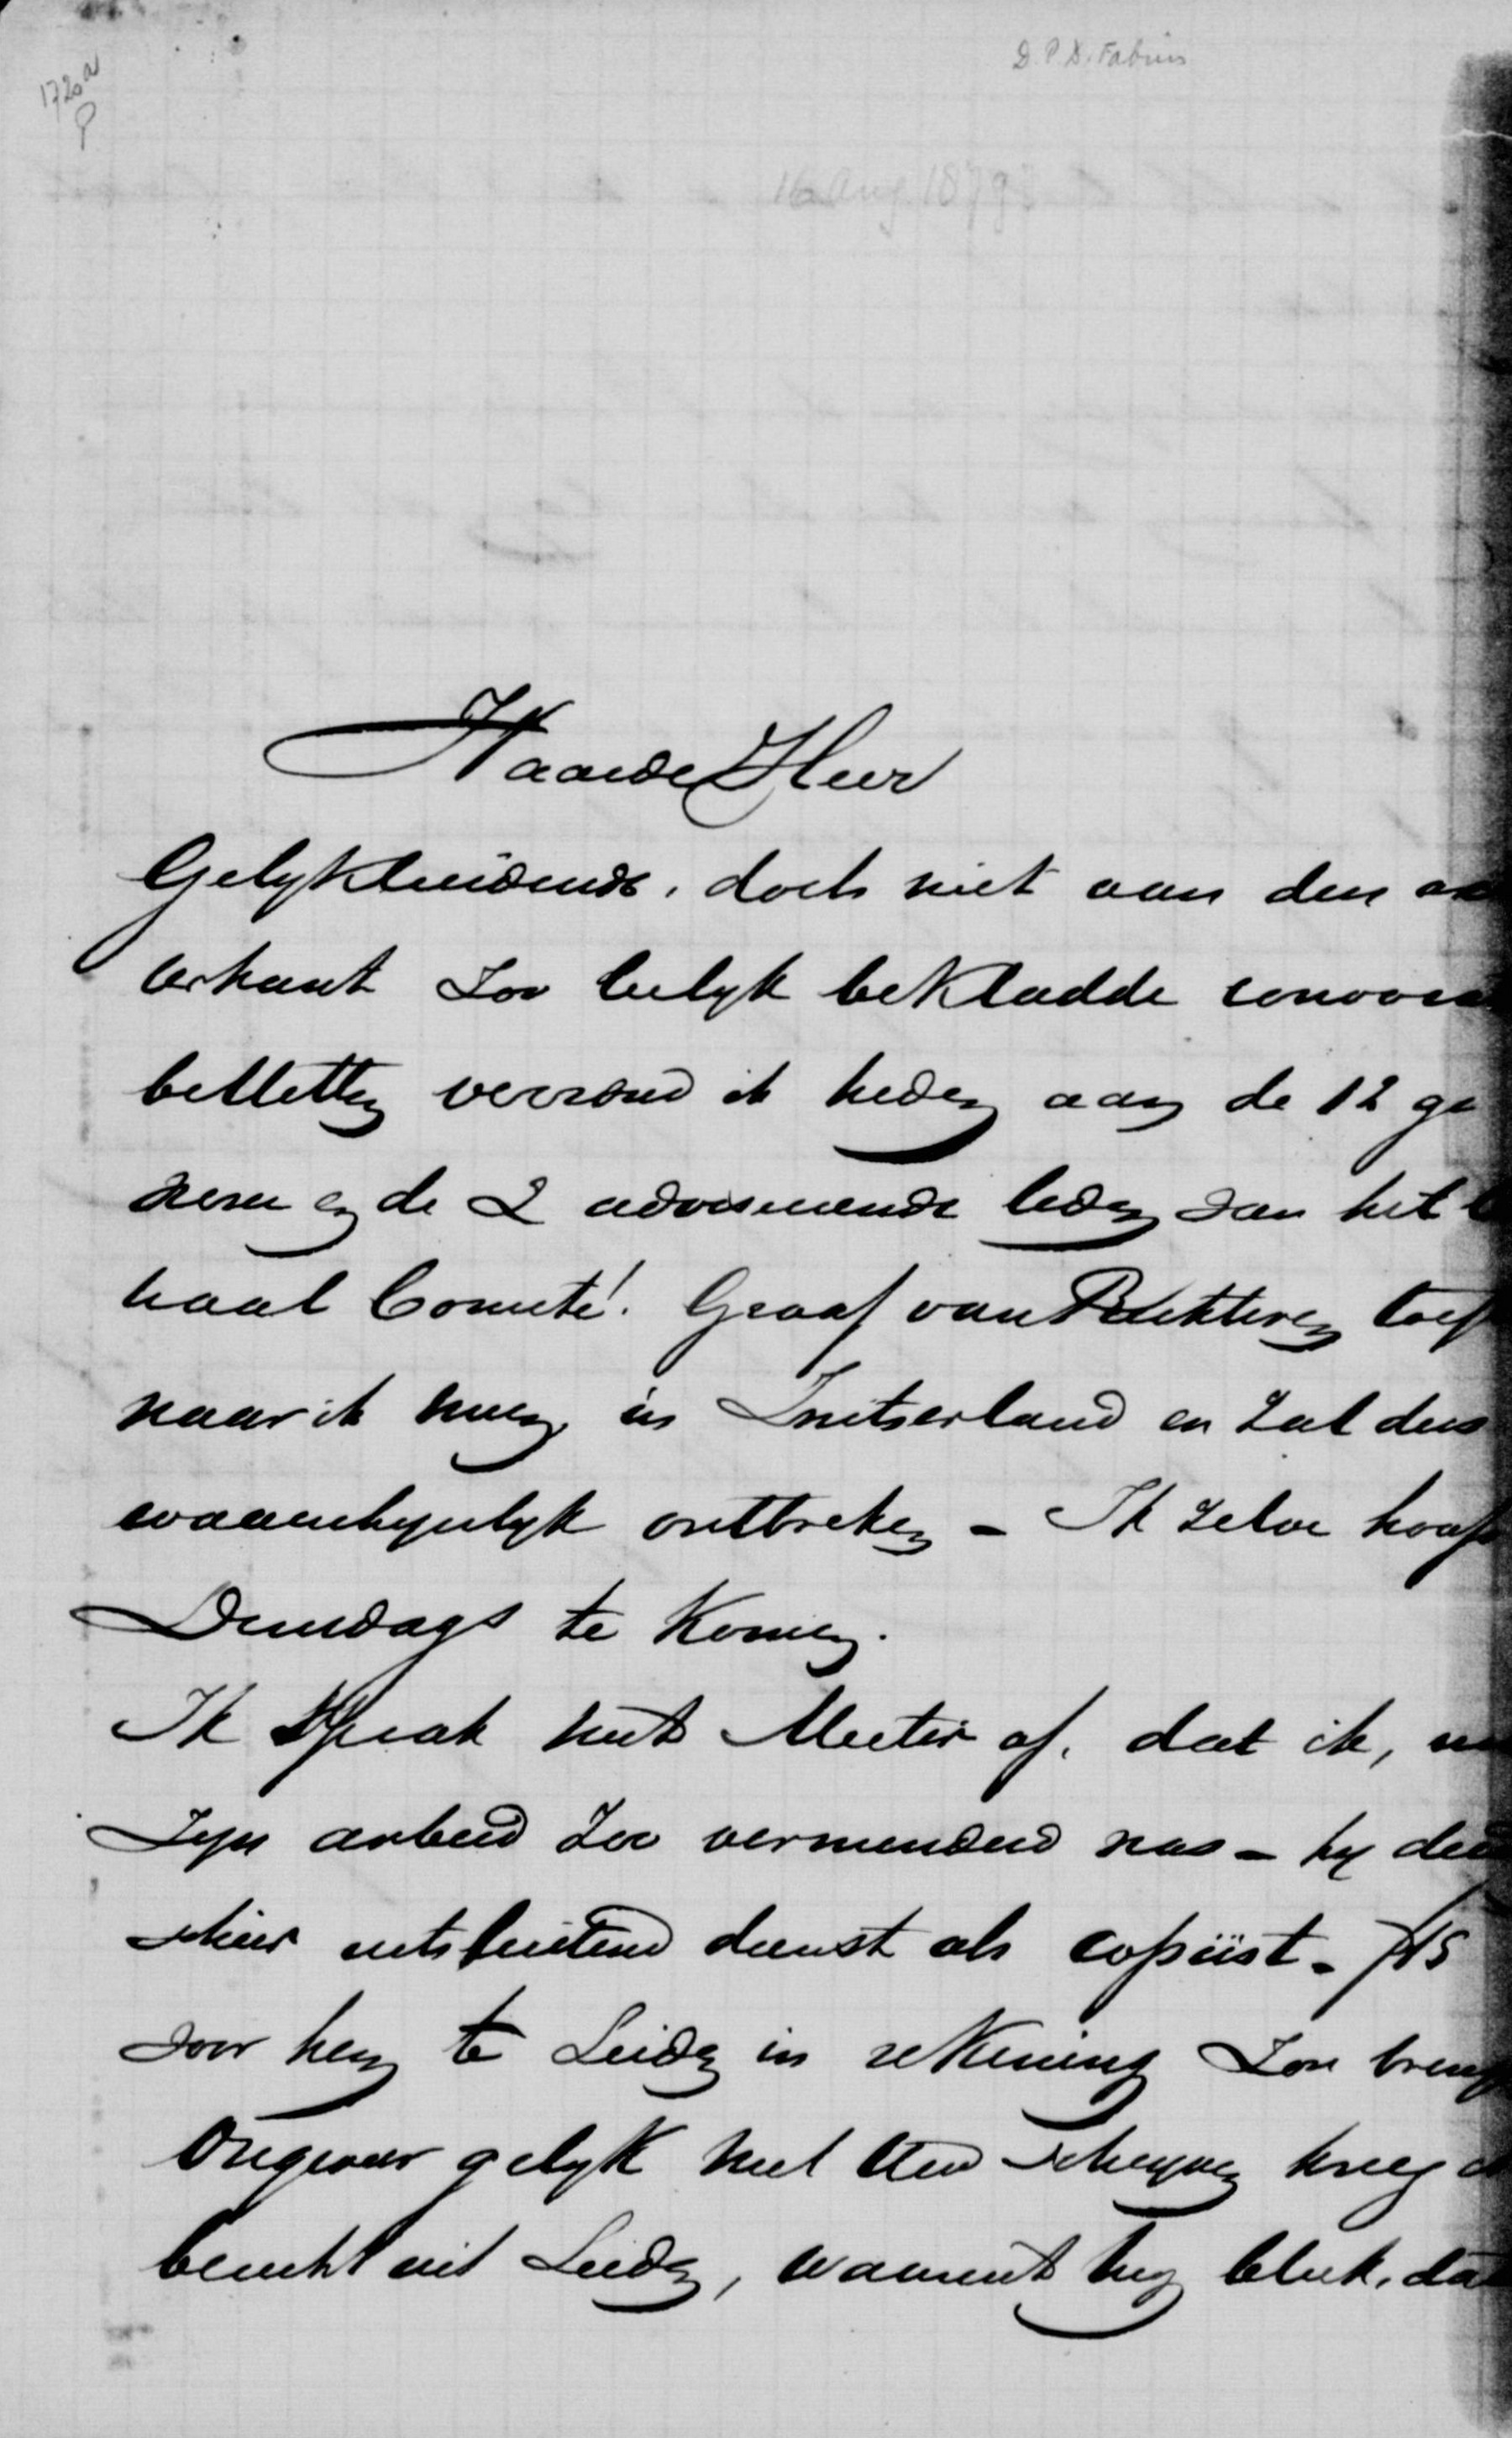 D.P.D. Fabius
1720a
16 Aug. 1879
Waarde Heer
Gelykluidende, doch niet aan den
terkant zoo leelyk bekladde convoca
billetten verzond ik heden aan de 12 ge
wone en de 2 adviseerende leden van het
traal Comité. Graaf van Rechteren toef
naar ik meen in Zwitserland en zal dus
waarschynlyk ontbreken - Ik zelve hoop
Dinsdags te komen.
Ik sprak met Meeter af, dat ik, nu
zyn arbeid zoo verminderd was - hy deed
schier uitsluitend dienst als copiist - f15
voor hem te Leiden in rekening zou breng
Ongeveer gelyk met Uw schryven kreeg ik
bericht uit Leiden, waaruit my bleek, dat